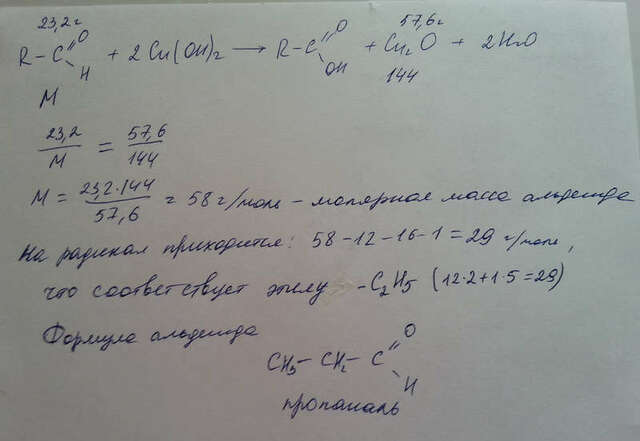 23,2г 57,6г
R–C(=O)–H + 2Cu(OH)₂ → R–C(=O)–OH + Cu₂O + 2H₂O
M 144
23,2/M = 57,6/144
M = 23,2·144/57,6 = 58 г/моль – молярная масса альдегида
На радикал приходится: 58-12-16-1=29 г/моль,
что соответствует этилу -C₂H₅ (12·2+1·5=29)
Формула альдегида
CH₃–CH₂–C(=O)–H
пропаналь